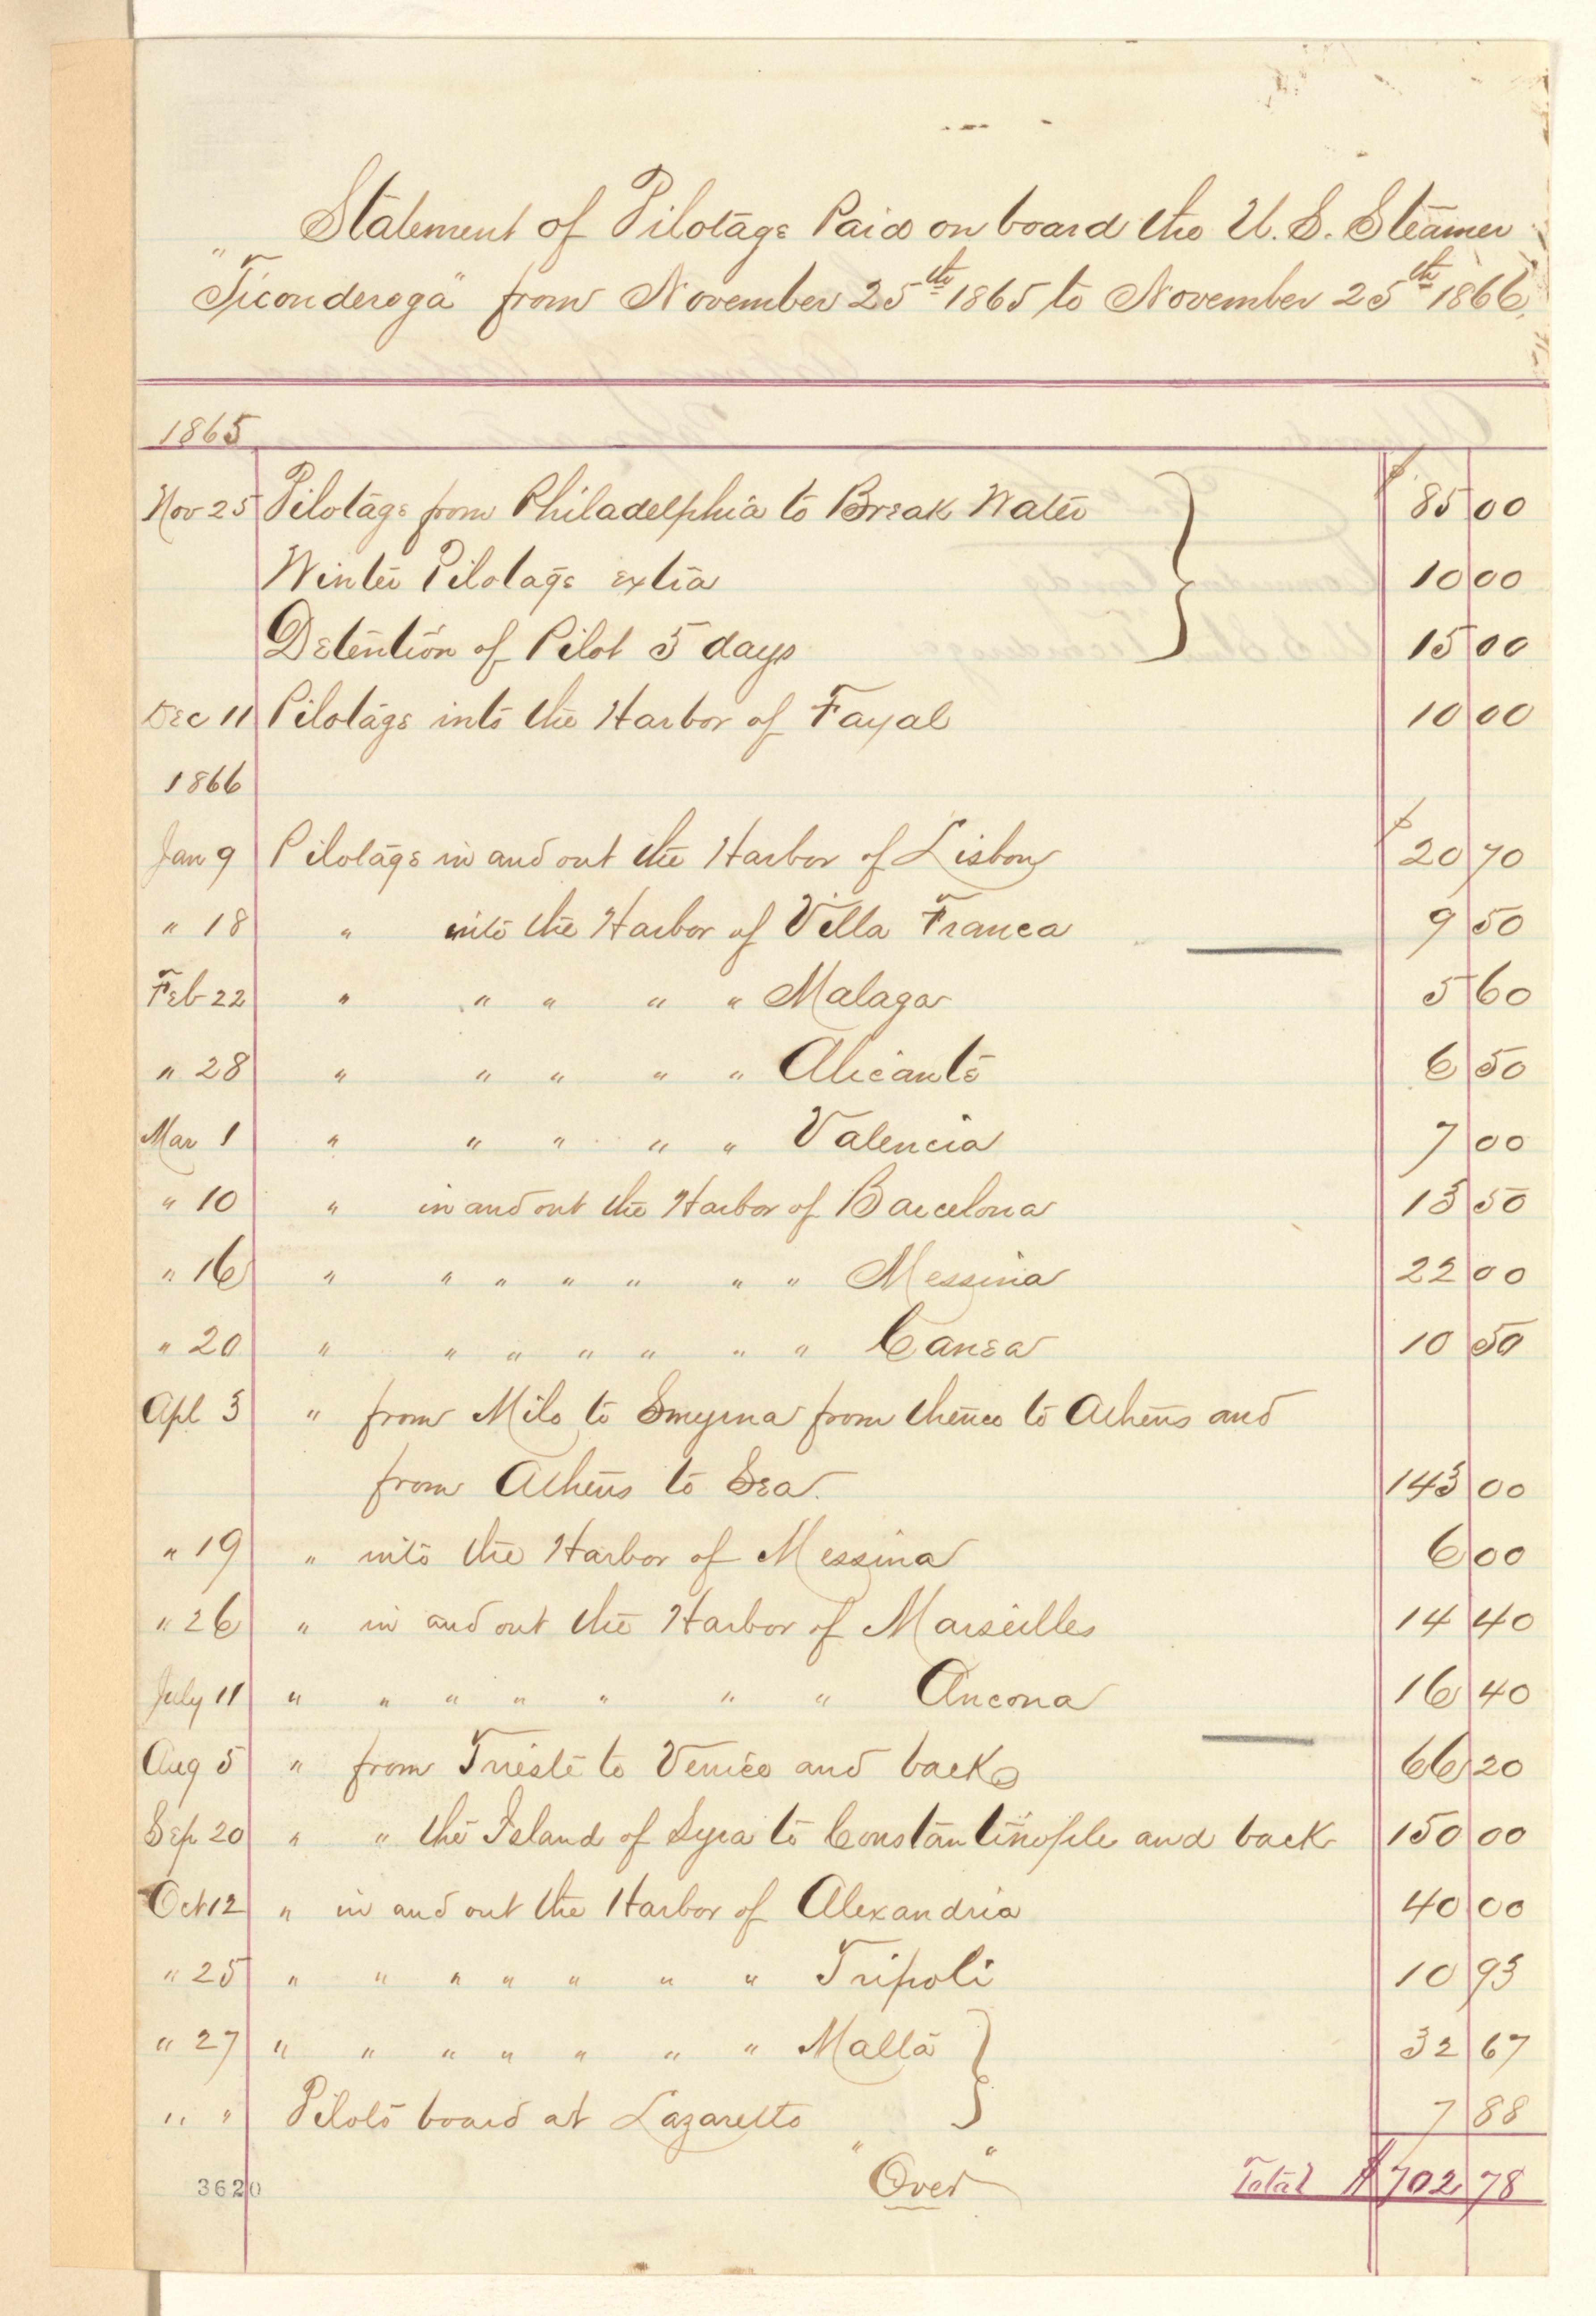 Statement of Pilotage Paid on board the U. S. Steamer
"Ticonderoga" from November 25th 1865 to November 25th 1866.
1865
Nov 25 Pilotage from Philadelphia to Break Water $ 85 00
Winter Pilotage extra 10 00
Detention of Pilot 5 days 15 00
Dec 11 Pilotage into the Harbor of Fayal 10 00
1866
Jan 9 Pilotage in and out the Harbor of Lisbon $ 20 70
" 18 " into the Harbor of Villa Franca 9 50
Feb 22 " " " " " Malaga 5 60
" 28 " " " " " Alicante 6 50
Mar 1 " " " " " Valencia 7 00
" 10 " in and out the Harbor of Barcelona 13 50
" 16 " " " " " " " Messina 22 00
" 20 " " " " " " " Canea 10 50
Apl 3 " from Milo to Smyrna from thence to Athens and
from Athens to Sea. 143 00
" 19 " into the Harbor of Messina 6 00
" 26 " in and out the Harbor of Marseilles 14 40
July 11 " " " " " " " Ancona 16 40
Aug 5 " from Trieste to Venice and back 66 20
Sep 20 " " the Island of Syra to Constantinople and back 150 00
Oct 12 " in and out the Harbor of Alexandria 40 00
" 25 " " " " " " " Tripoli 10 93
" 27 " " " " " " " Malta 32 67
" " Pilots board at Lazaretto 7 88
3620 "Over" Total $ 702 78